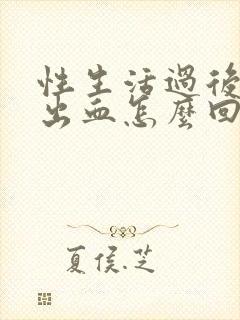 性生活過後
出血怎麼回
夏侯.芝